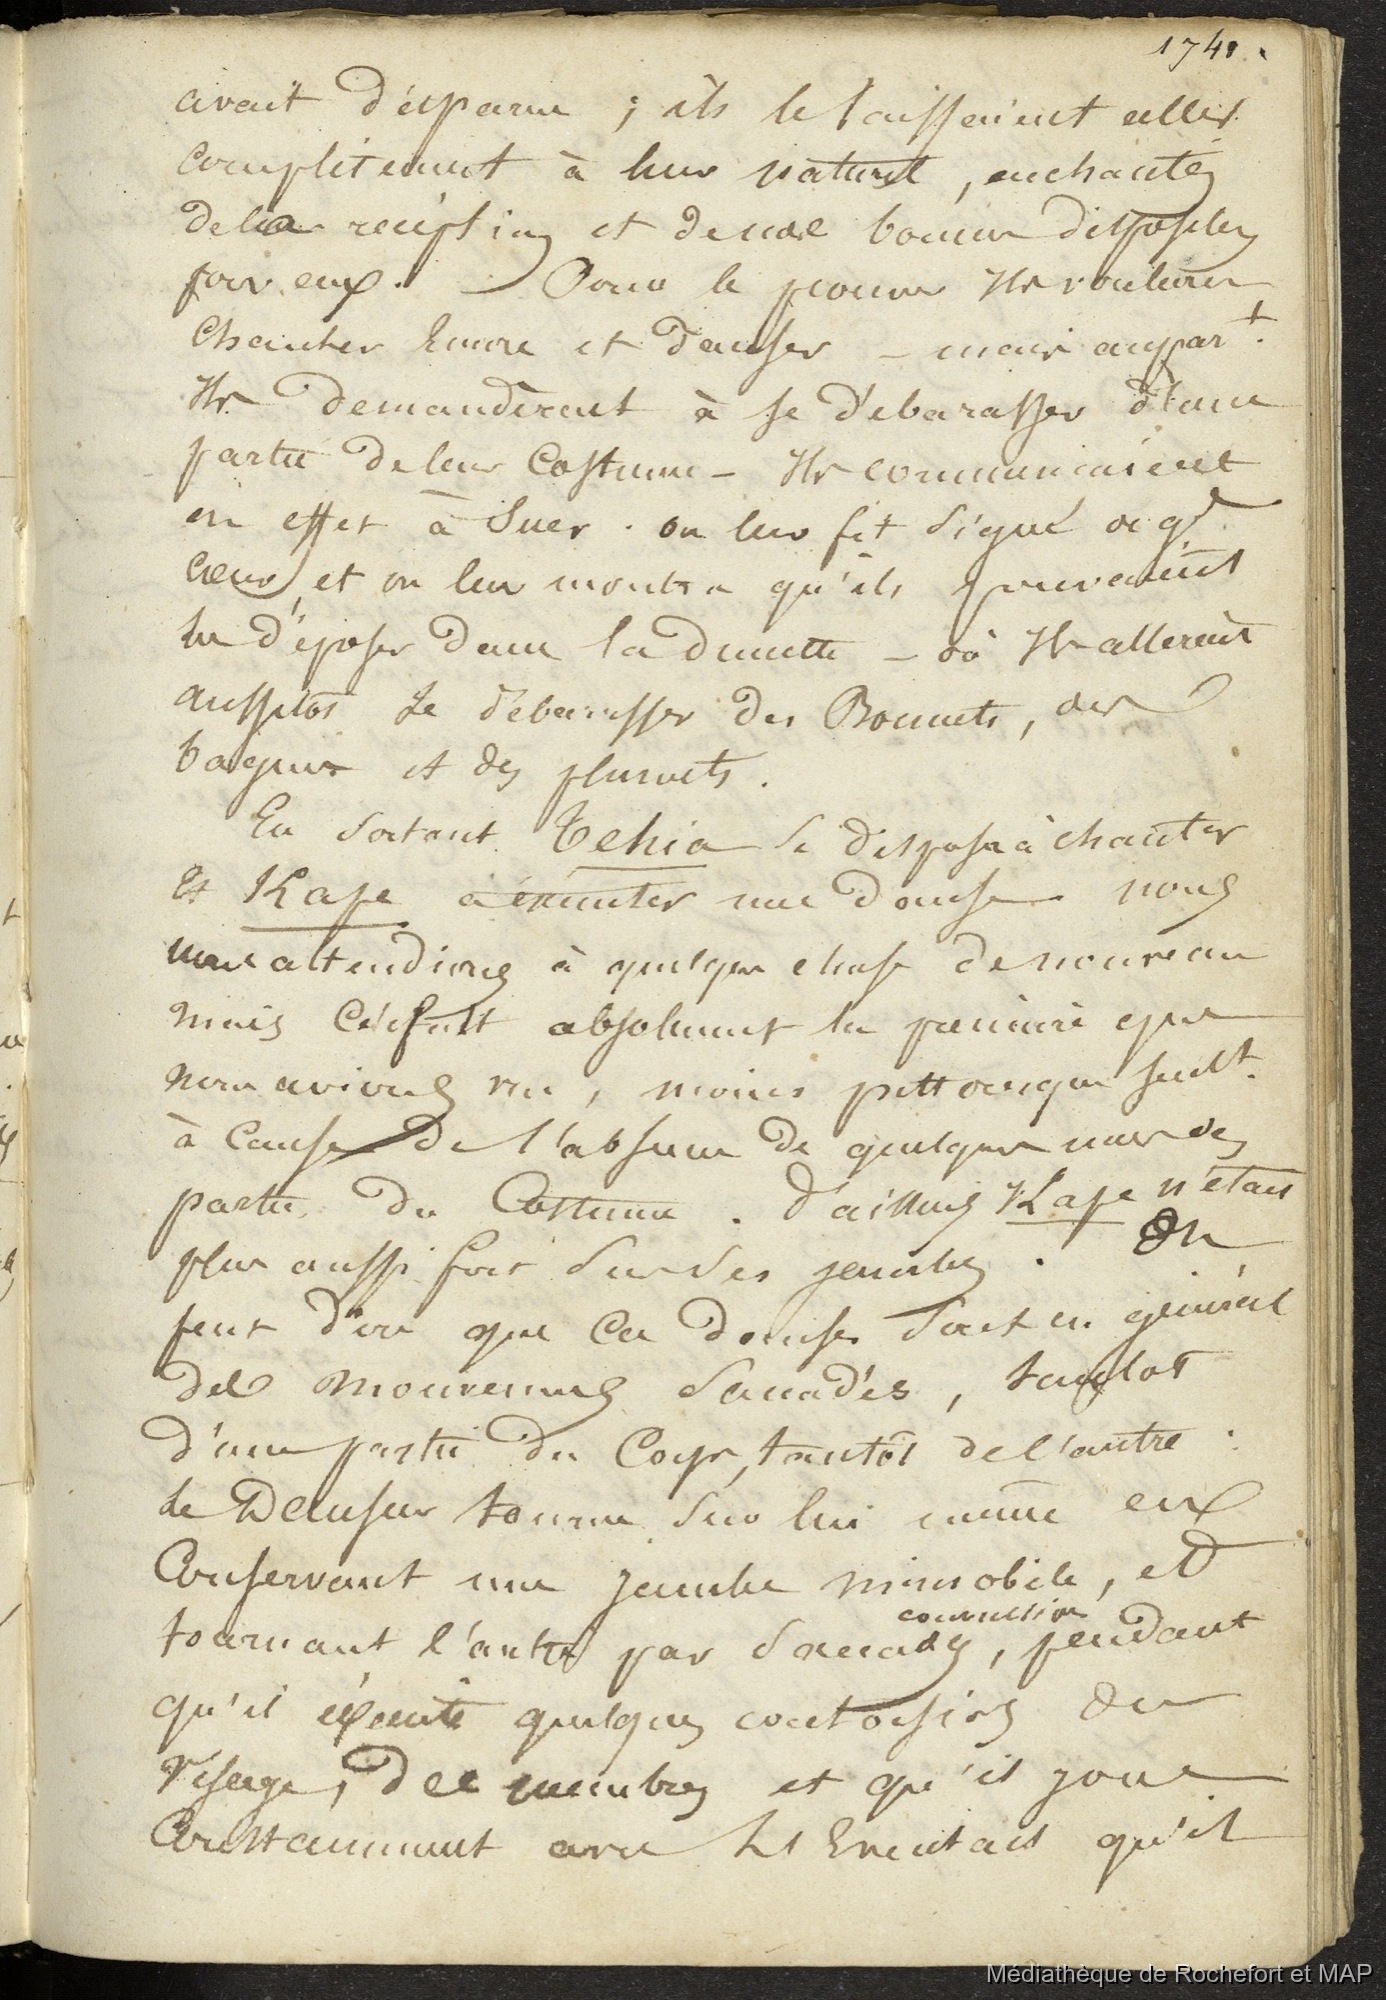 1741.
avait disparu ; ils se laissaient aller
complètement à leur naturel, enchantés
de la réception et de nos bonnes dispositions
pour eux. — Pour le prouver Ils voulurent
Chanter Encore et danser — mais aupart.
Ils demandèrent à se débarasser d'une
partie de leur Costume — Ils commencaient
en effet à Suer. on leur fit Signe de gd
cœur, et on leur montra qu'ils pouvaient
les déposer dans la dunette — où Ils allèrent
aussitôt Se débarasser des Bonnets, des
bagues et des plumets.
En Sortant Tehia Se disposa à chanter
Et Kape à éxécuter une danse nous
nous attendions à quelque chose de nouveau
mais C'était absolument la première que
nous avions vu, moins pittoresque seult.
à Cause de l'absence de quelques unes des
parties du Costume. d'ailleurs Kape n'était
plus aussi fort Sur Ses jambes. On
peut dire que Ces danses Sont en général
des mouvemens Saccadés, tantot
d'une partie du Corps, tantôt de l'autre.
Le Danseur tourne Sur lui même en
Conservant une jambe immobile, et
tournant l'autre par Saccades convulsives, pendant
qu'il éxécute quelques contorsions du
visage, des membres et qu'il joue
Constamment avec les Eventails qu'il
Médiathèque de Rochefort et MAP